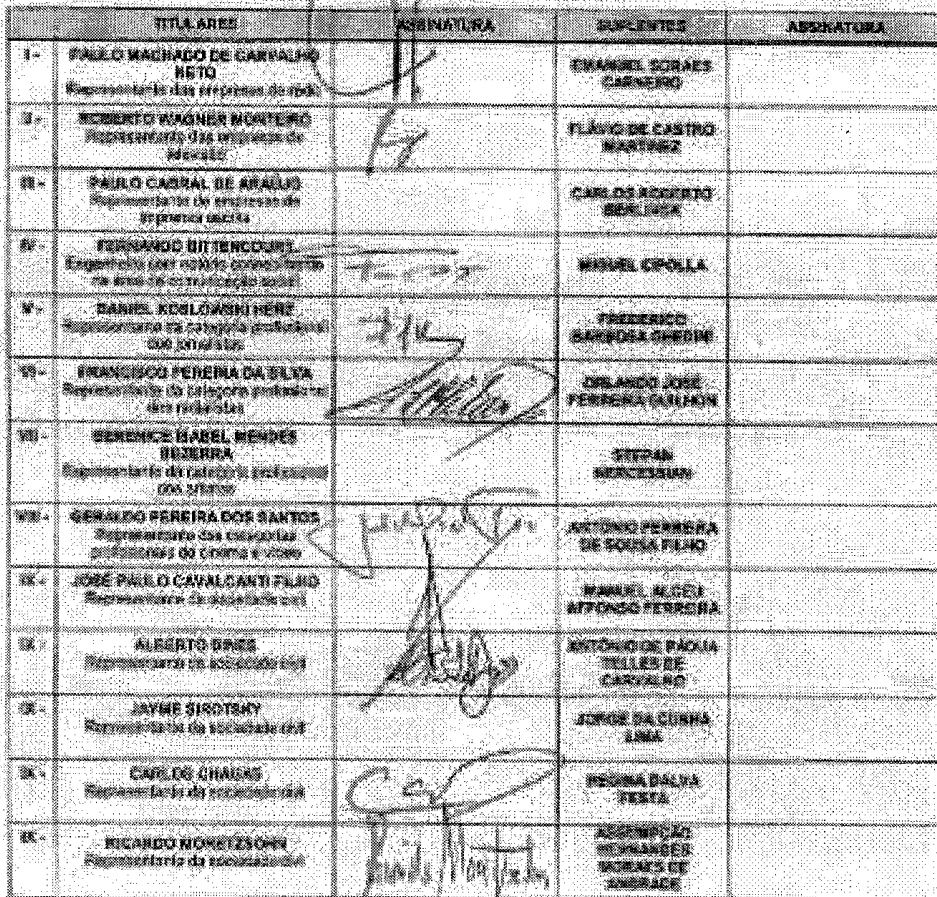 TITULARES ASSINATURA SUPLENTES ASSINATURA
I - PAULO MACHADO DE CARVALHO
NETO
Representante das empresas de rádio
EMANUEL SORAES
CARNEIRO
II - ROBERTO WAGNER MONTEIRO
Representante das empresas de
televisão
FLÁVIO DE CASTRO
MARTINEZ
III - PAULO CABRAL DE ARAÚJO
Representante de empresas de
imprensa escrita
CARLOS ROBERTO
BERLINCK
IV - FERNANDO BITTENCOURT
Engenheiro com notório conhecimento
na área de comunicação social
MIGUEL CIPOLLA
V - DANIEL KOSLOWSKI HERZ
Representante da categoria profissional
dos jornalistas
FREDERICO
BARBOSA GHEDINI
VI - FRANCISCO PEREIRA DA SILVA
Representante da categoria profissional
dos radialistas
ORLANDO JOSÉ
FERREIRA GUILHON
VII - BERENICE ISABEL MENDES
BEZERRA
Representante da categoria profissional
dos artistas
STEPAN
NERCESSIAN
VIII - GERALDO PEREIRA DOS SANTOS
Representante das categorias
profissionais do cinema e vídeo
ANTÔNIO FERREIRA
DE SOUSA FILHO
IX - JOSÉ PAULO CAVALCANTI FILHO
Representante da sociedade civil
MANUEL ALCEU
AFFONSO FERREIRA
IX - ALBERTO DINES
Representante da sociedade civil
ANTÔNIO DE PÁDUA
TELLES DE
CARVALHO
IX - JAYME SIROTSKY
Representante da sociedade civil
JORGE DA CUNHA
LIMA
IX - CARLOS CHAGAS
Representante da sociedade civil
REGINA DALVA
FESTA
IX - RICARDO MORETZSOHN
Representante da sociedade civil
ASSUMPÇÃO
HERNANDES
MORAES DE
ANDRADE